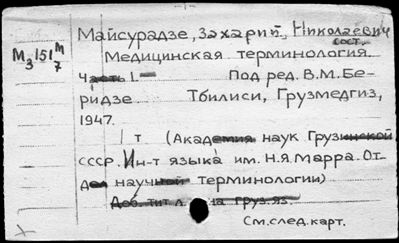 Майсурадзе, Захарий, Николаевич
сост.
М3 151 м/7
Медицинская терминология.
Часть 1.— Под ред. В.М.Бе-
ридзе Тбилиси, Грузмедгиз,
1947.
1 т (Академия наук Грузинской
СССР. Ин-т языка им. Н.Я.Марра. От-
дел научной терминологии)
Доб. тит. л. на груз. яз.
См.след.карт.